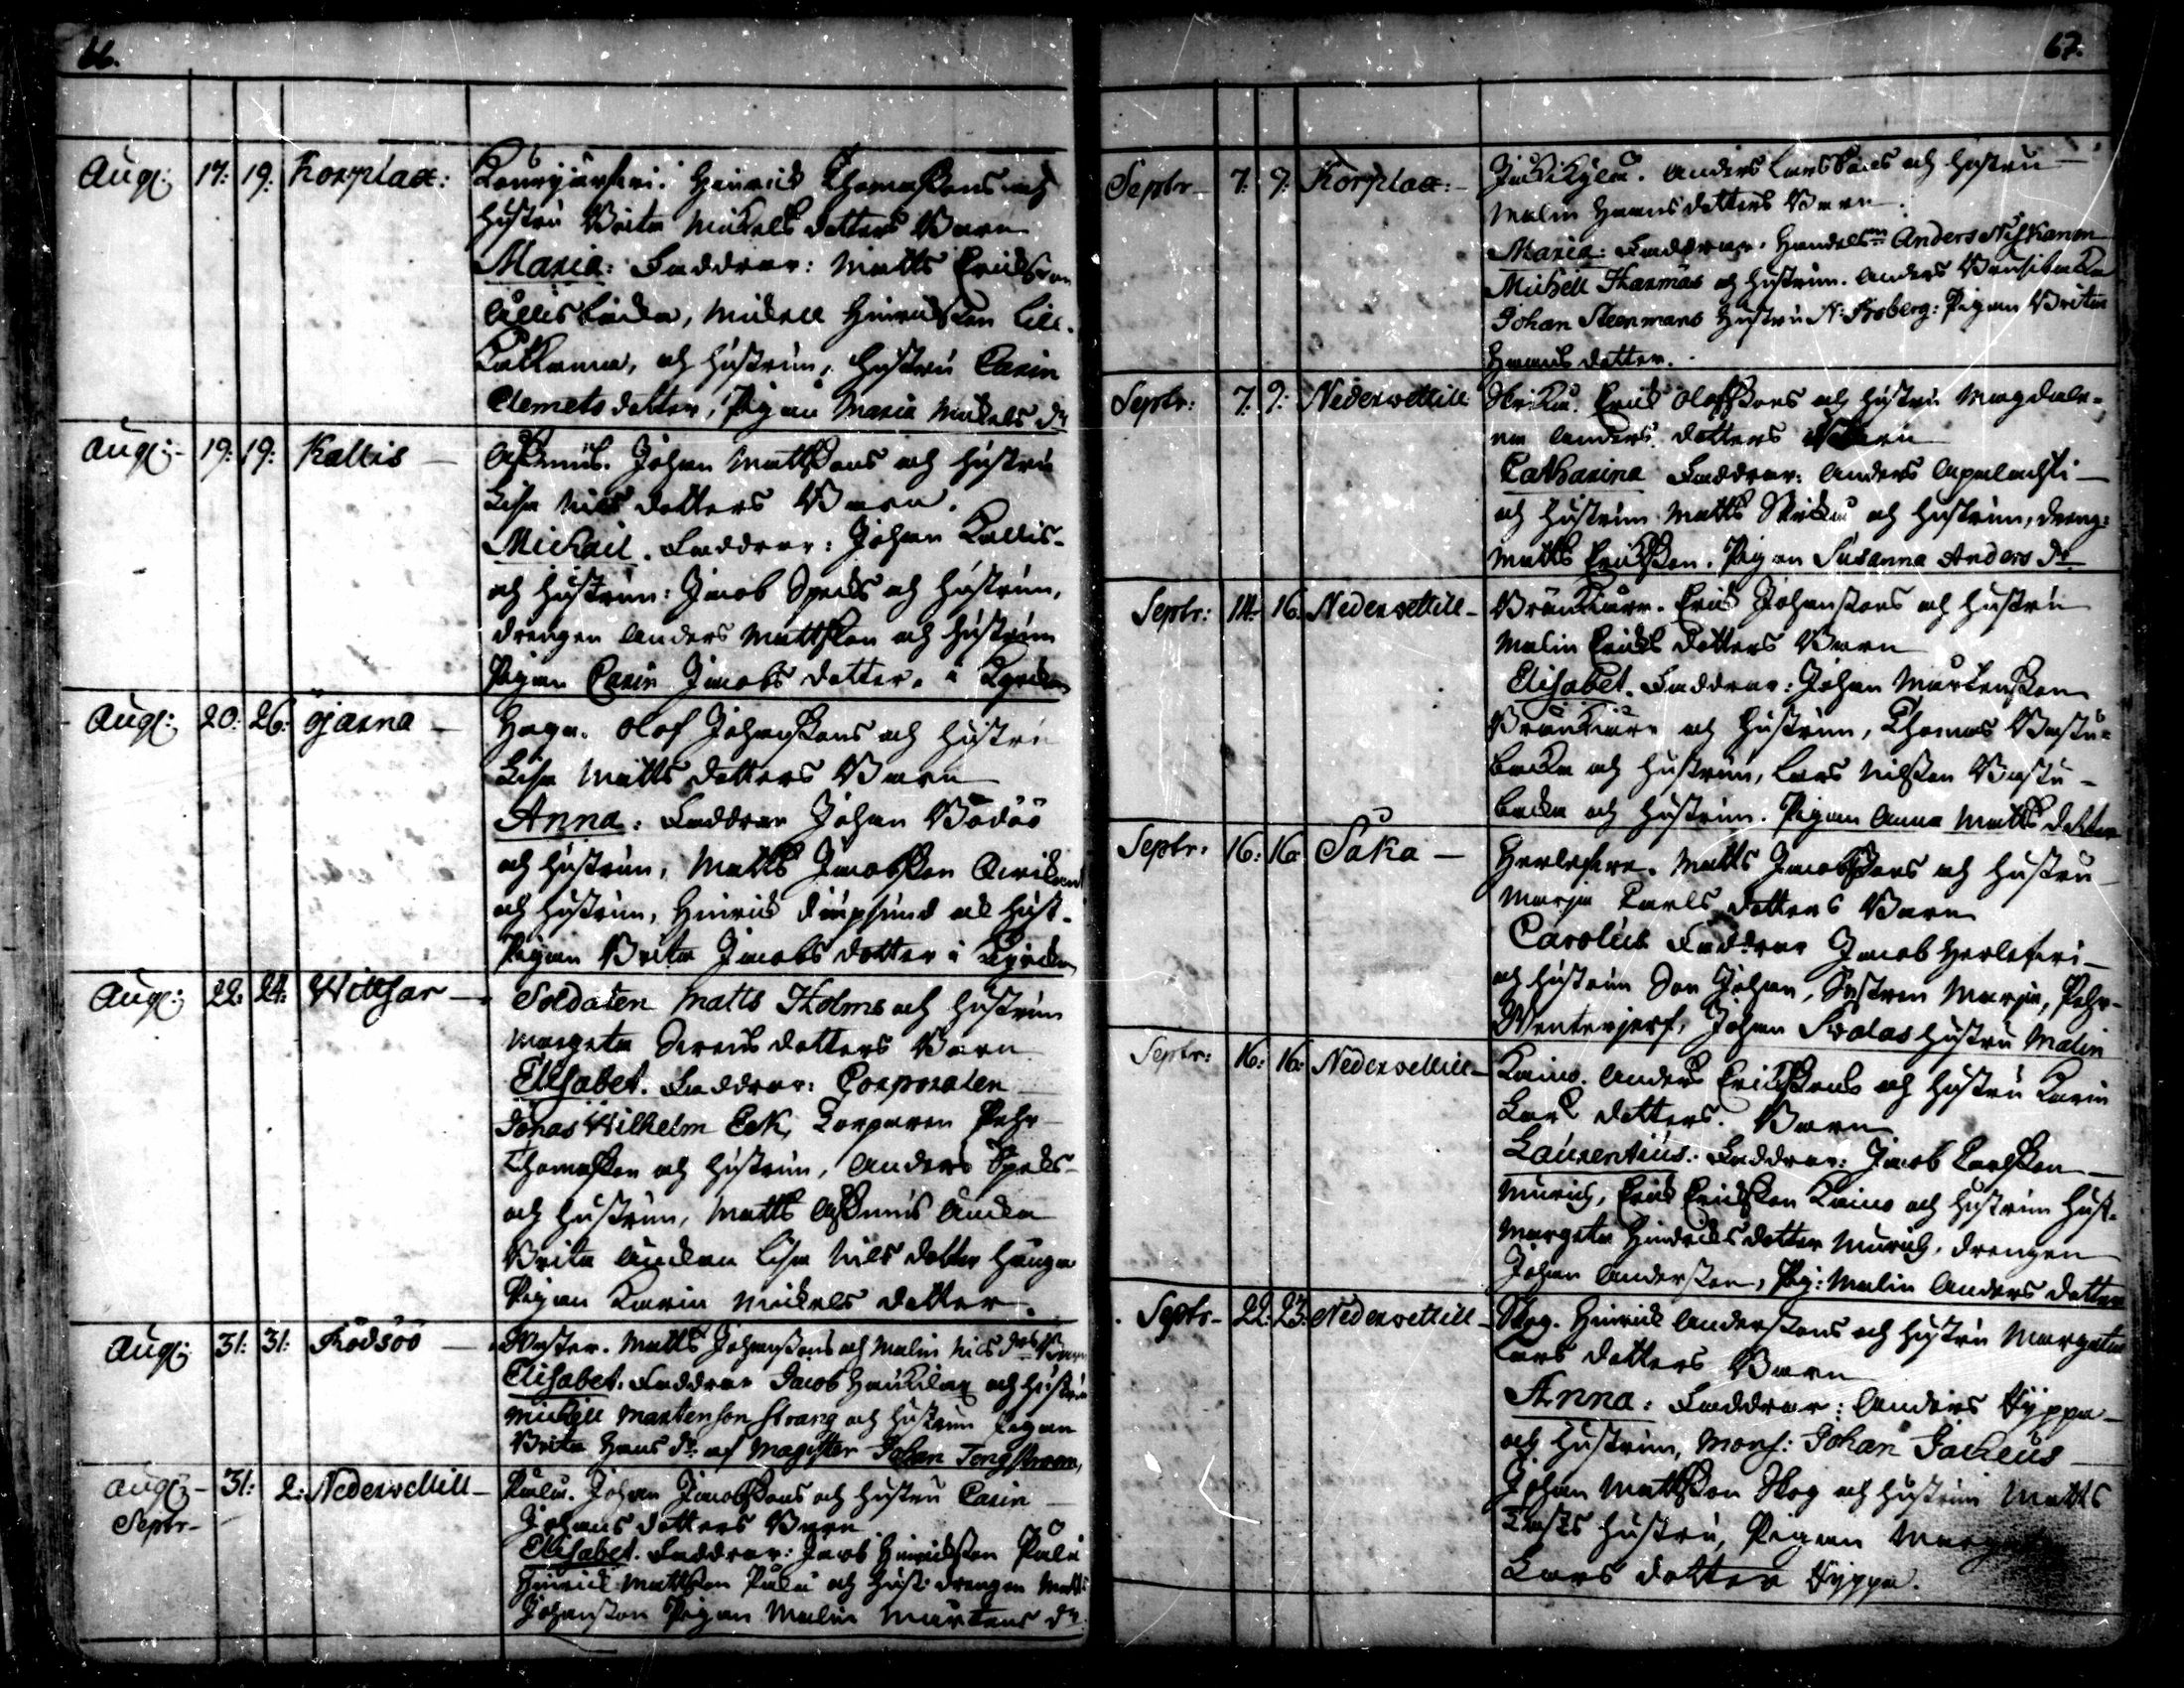 66.
Aug: 17: 19: Korplax:
Hinrich Thomassons och
Hustru Brita Mickels dotters Barn
Maria: Faddrar: Matts Ericksson
Mickell Hinricksson Lill-
och Hustrun, Hustru Carin
Clemets dotter, Pigan Maria Mickels dr
Aug: 19: 19: Kallis
Johan Mattssons och Hustru
Lisa Nils dotters Barn.
Michail. Faddrar: Johan Kallis-
och Hustrun: Jacob Specks och Hustrun,
drengen Anders Mattsson och Hustrun
Pigan Carin Jacobs dotter. i Kyrckan
Aug: 20: 26: gjärna
Haga. Olof Johanssons och Hustru
Lisa Matts dotters Barn
Anna: Faddrar Johan Bodöö
och Hustrun, Matts Jacobsson
och Hustrun, Hinrick Diupsund och Hust.
Pigan Brita Jacobs dotter i Kyrckan
Aug: 22: 24: Wittsar
Soldaten Matts Holms och Hustrun
Margeta dotters Barn
Elisabet. Faddrar: Corporalen
Jonas Wilhelm Eek, Torparen Pehr
Thomasson och Hustrun, Anders Specks-
och Hustrun, Matts Enckan
Brita Enckan Lisa Nils dotter Hauga
Pigan Karin Mickels dotter.
Aug: 31: 31: Rödsöö
Wester. Matts Johanssons och Malin Nils drs Barn
Elisabet. Faddrar Jacob och Hustrun
Mickell Martenson Strang och Hustrun Pigan
Brita Hans dr af Magister Johan Tengstroom,
Aug: 31: 2: Nederwettill
Septr
Pulu. Johan Jacobssons och Hustru Carin
Johans dotters Barn
Elisabet. Faddrar: Jacob Hinricksson Pulu
Hinrick Mattsson Pulu och Hust. drengen Matts
Johansson Pigan Malin Martens dr.
67.
Septr 7: 9: Korplax:
Anders Larssons och Hustru
Malin Hans dotters Barn.
Maria: Faddrar. Handelsm Anders Nyskanen
Michell Harmäs och Hustrun. Anders
Johan Steenmans Hustru N: Froberg: Pigan Brita
Hans dotter.
Septr: 7: 9: Nederwettill
Erick Olofssons och Hustru Magdale-
na Anders dotters Barn
Catharina Faddrar: Anders
och Hustrun Matts och Hustrun, dreng:
Matts Ericksson. Pigan Susanna Anders dr
Septr: 14: 16: Nederwettill
Brännkiärr. Erick Johanssons och Hustru
Malin Ericks dotters Barn
Elisabet. Faddrar: Johan Martensson
Brännkiärr och Hustrun, Thomas Bastu-
backa och Hustrun, Lars Nilsson Bastu-
backa och Hustrun. Pigan Anna Matts dotter
Septr: 16: 16 Såka
Herlefsere. Matts Jacobssons och Hustru
Marja Carls dotters Barn
Carolus Faddrar Jacob Herlefsri
och Hustrun Son Johan, Systren Marja, Pehr
Wenterjerf, Johan Svolas Hustru Malin
Septr: 16: 16: Nederwettill
Kaino. Anders Erickssons och Hustru Karin
Lars dotters Barn
Laurentius: Faddrar: Jacob Carlsson
Murick, Erick Ericksson Kaino och Hustrun Hust.
Margeta Hindricks dotter Murick, drengen
Johan Andersson, Pig: Malin Anders dotter
Septr 22: 23: Nederwettill
Skog. Hinrick Anderssons och Hustru Margeta
Lars dotters Barn
Anna: Faddrar: Anders Dyppa
och Hustrun, Mons: Johan Jacheus
Johan Mattsson Skog och Hustrun Matts
Hustru, Pigan
Lars dotter Dyppa.